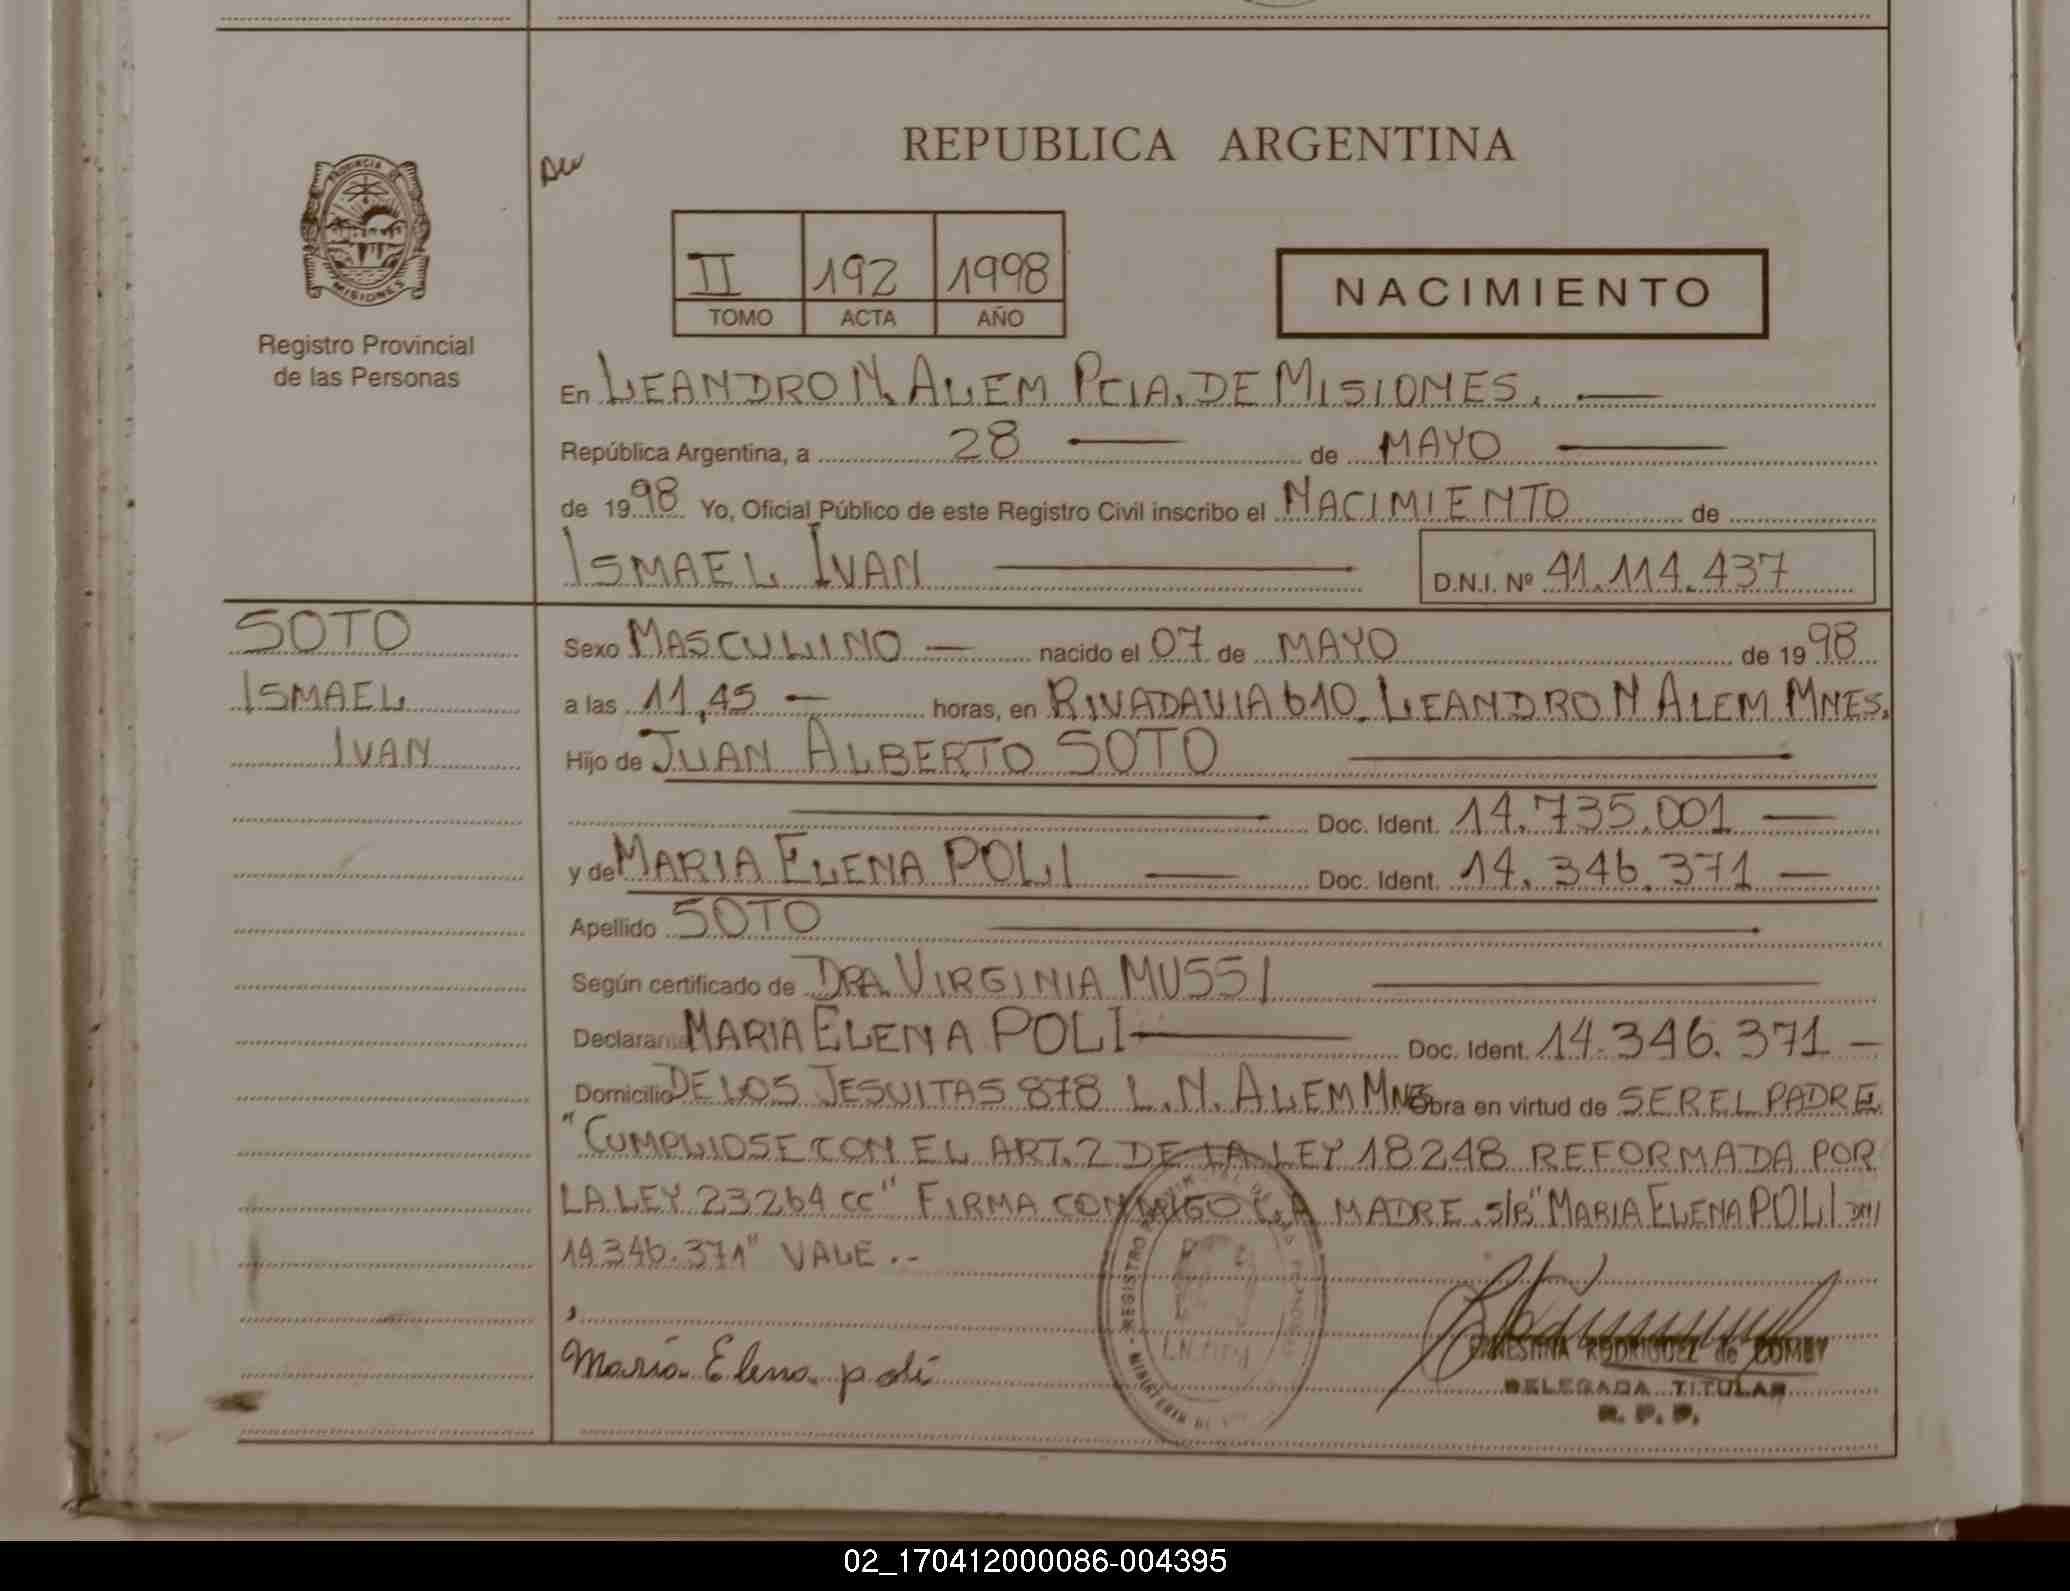 REPUBLICA ARGENTINA
PROVINCIA DE
MISIONES
Registro Provincial
de las Personas
II 192 1998
TOMO ACTA AÑO
NACIMIENTO
En LEANDRO N. ALEM PCIA. DE MISIONES. —
República Argentina, a 28 — de MAYO —
de 1998 Yo, Oficial Público de este Registro Civil inscribo el NACIMIENTO de
ISMAEL IVAN — D.N.I. Nº 41.114.437
SOTO
ISMAEL
IVAN
Sexo MASCULINO — nacido el 07 de MAYO de 1998
a las 11,45 — horas, en RIVADAVIA 610. LEANDRO N ALEM MNES.
Hijo de JUAN ALBERTO SOTO —
— Doc. Ident. 14.735.001 —
y de MARIA ELENA POLI — Doc. Ident. 14.346.371 —
Apellido SOTO —
Según certificado de DRA. VIRGINIA MUSSI —
Declarante MARIA ELENA POLI — Doc. Ident. 14.346.371 —
Domicilio DE LOS JESUITAS 878 L.N. ALEM MNES Obra en virtud de SER EL PADRE
"CUMPLIOSE CON EL ART. 2 DE LA LEY 18248 REFORMADA POR
LA LEY 23264 CC" FIRMA CONMIGO LA MADRE. S/B "MARIA ELENA POLI DNI
14.346.371" VALE .-
Maria Elena poli
ERNESTINA RODRIGUEZ de COMBY
DELEGADA TITULAR
R. P. P.
02_170412000086-004395